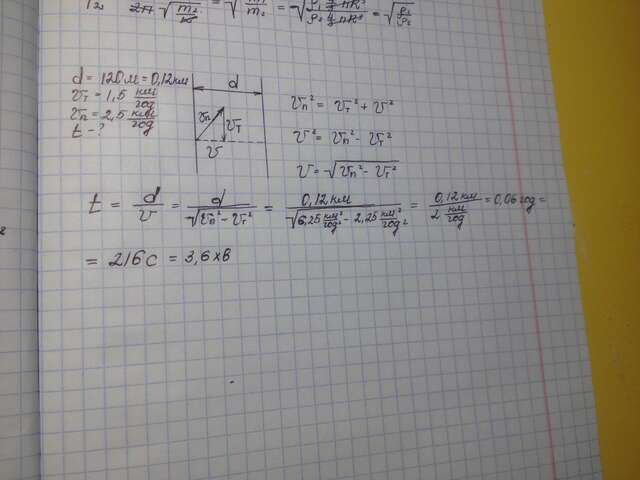 d = 120 м = 0,12 км
υт = 1,5 км/год
υп = 2,5 км/год
t - ?
d
υп
υт
υ
υп² = υт² + υ²
υ² = υп² - υт²
υ = √(υп² - υт²)
t = d/υ = d/√(υп² - υт²) = 0,12 км/√(6,25 км²/год² - 2,25 км²/год²) = 0,12 км/2 км/год = 0,06 год =
= 216 с = 3,6 хв